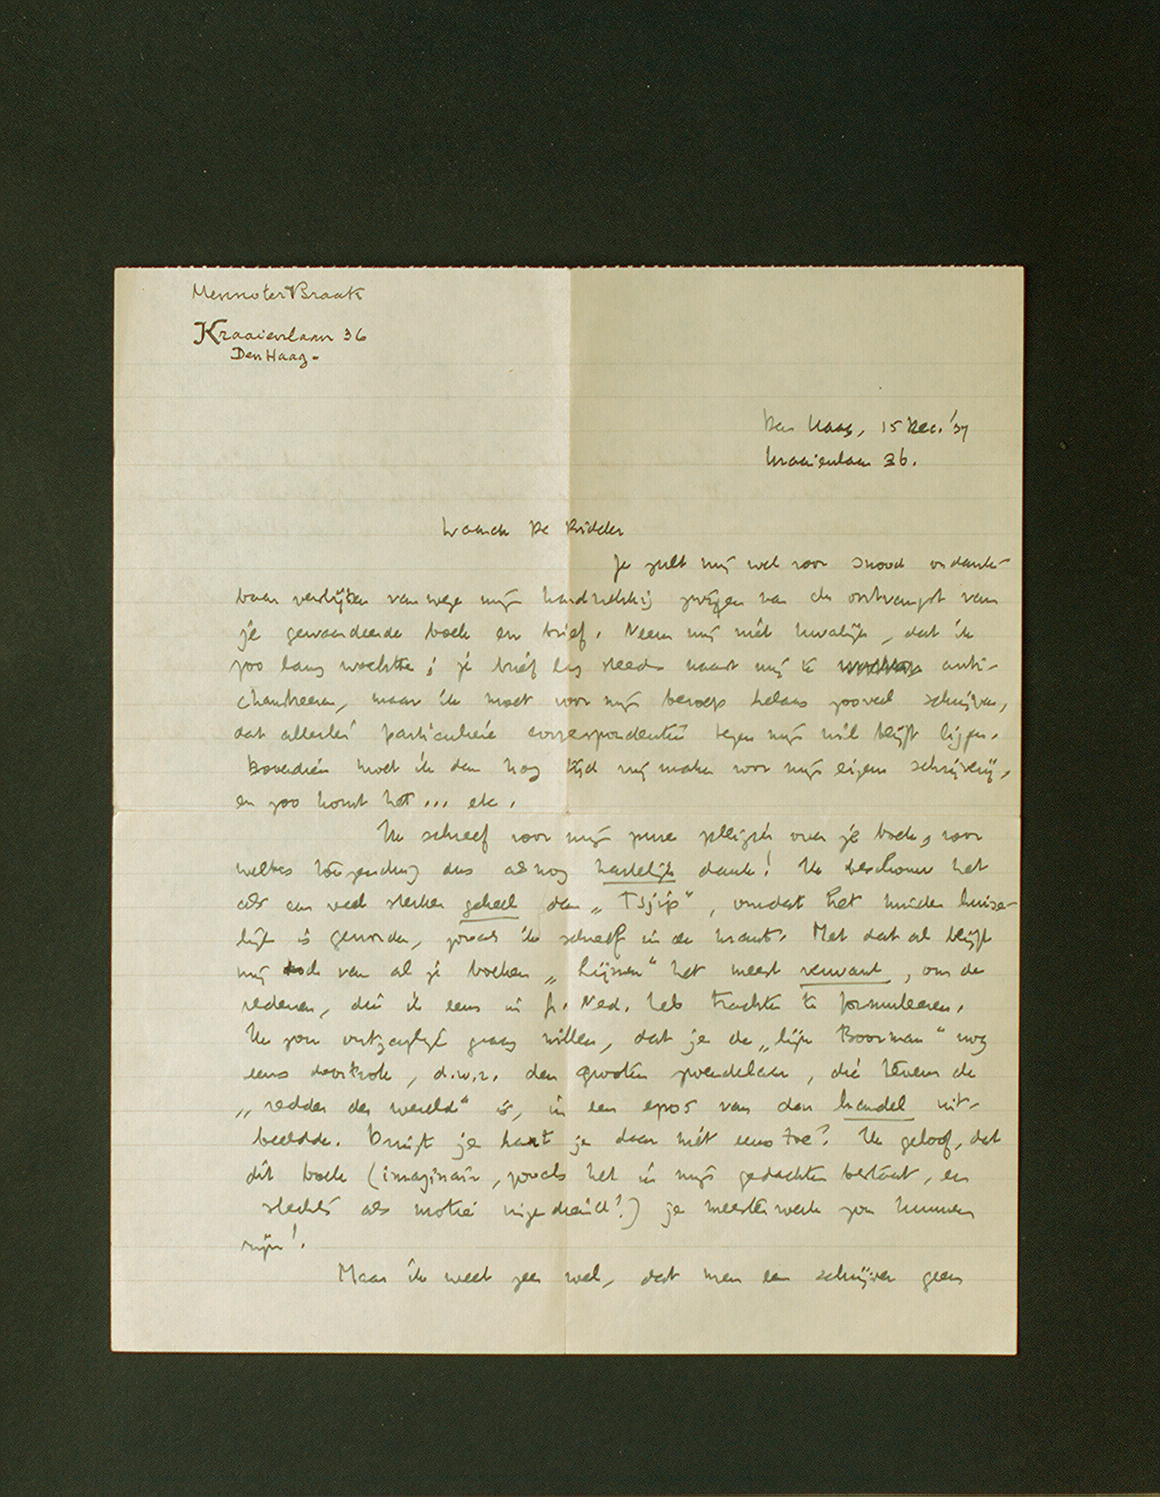 Menno ter Braak
Kraaienlaan 36
Den Haag.
Den Haag, 15 Dec. '37
Kraaienlaan 36.
Waarde De Ridder
Je zult mij wel voor snood ondank-
baar verslijten vanwege mijn hardnekkig zwijgen na de ontvangst van
je gewaardeerde boek en brief. Neem mij niet kwalijk, dat ik
zoo lang wachtte; je brief lag steeds naast mij te anti-
chambreeren, maar ik moet voor mijn beroep helaas zooveel schrijven,
dat allerlei particuliere correspondentie tegen mijn wil blijft liggen.
Bovendien moet ik dan nog tijd vrij maken voor mijn eigen schrijverij,
en zoo komt het... etc.
Ik schreef voor mijn pure plezier over je boek, voor
welks toezending dus alsnog hartelijk dank! Ik beschouw het
als een veel sterker geheel dan „Tsjip", omdat het minder huise-
lijk is geworden, zooals ik schreef in de krant. Met dat al blijft
mij van al je boeken „Lijmen" het meest verwant, om de
redenen, die ik eens in Gr. Ned. heb trachten te formuleeren.
Ik zou ontzaglijk graag willen, dat je de „lijn Boorman" nog
eens doortrok, d.w.z. den grooten zwendelaar, die tevens de
„redder der wereld" is, in een epos van den handel uit-
beeldde. Dringt je hart je daar niet eens toe? Ik geloof, dat
dit boek (imaginair, zooals het in mijn gedachten bestaat, en
slechts als motief ) je meesterwerk zou kunnen
zijn!
Maar ik weet zeer wel, dat men een schrijver geen